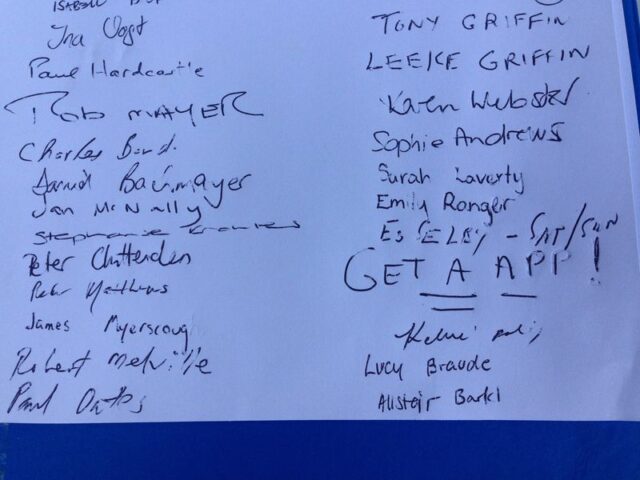 Ina Vogt
Paul Hardcastle
Rob MAYER
Charles Bond.
Baumayer
Jan McNally
Stephanie
Peter Chittenden
Peter Matthews
James Myerscoug
Robert Melville
Paul Oates
TONY GRIFFIN
LEEKE GRIFFIN
Karen Webster
Sophie Andrews
Sarah Laverty
Emily Ranger
ED SELBY - SAT/SUN
GET A APP!
Lucy Braude
Alistair Barkl